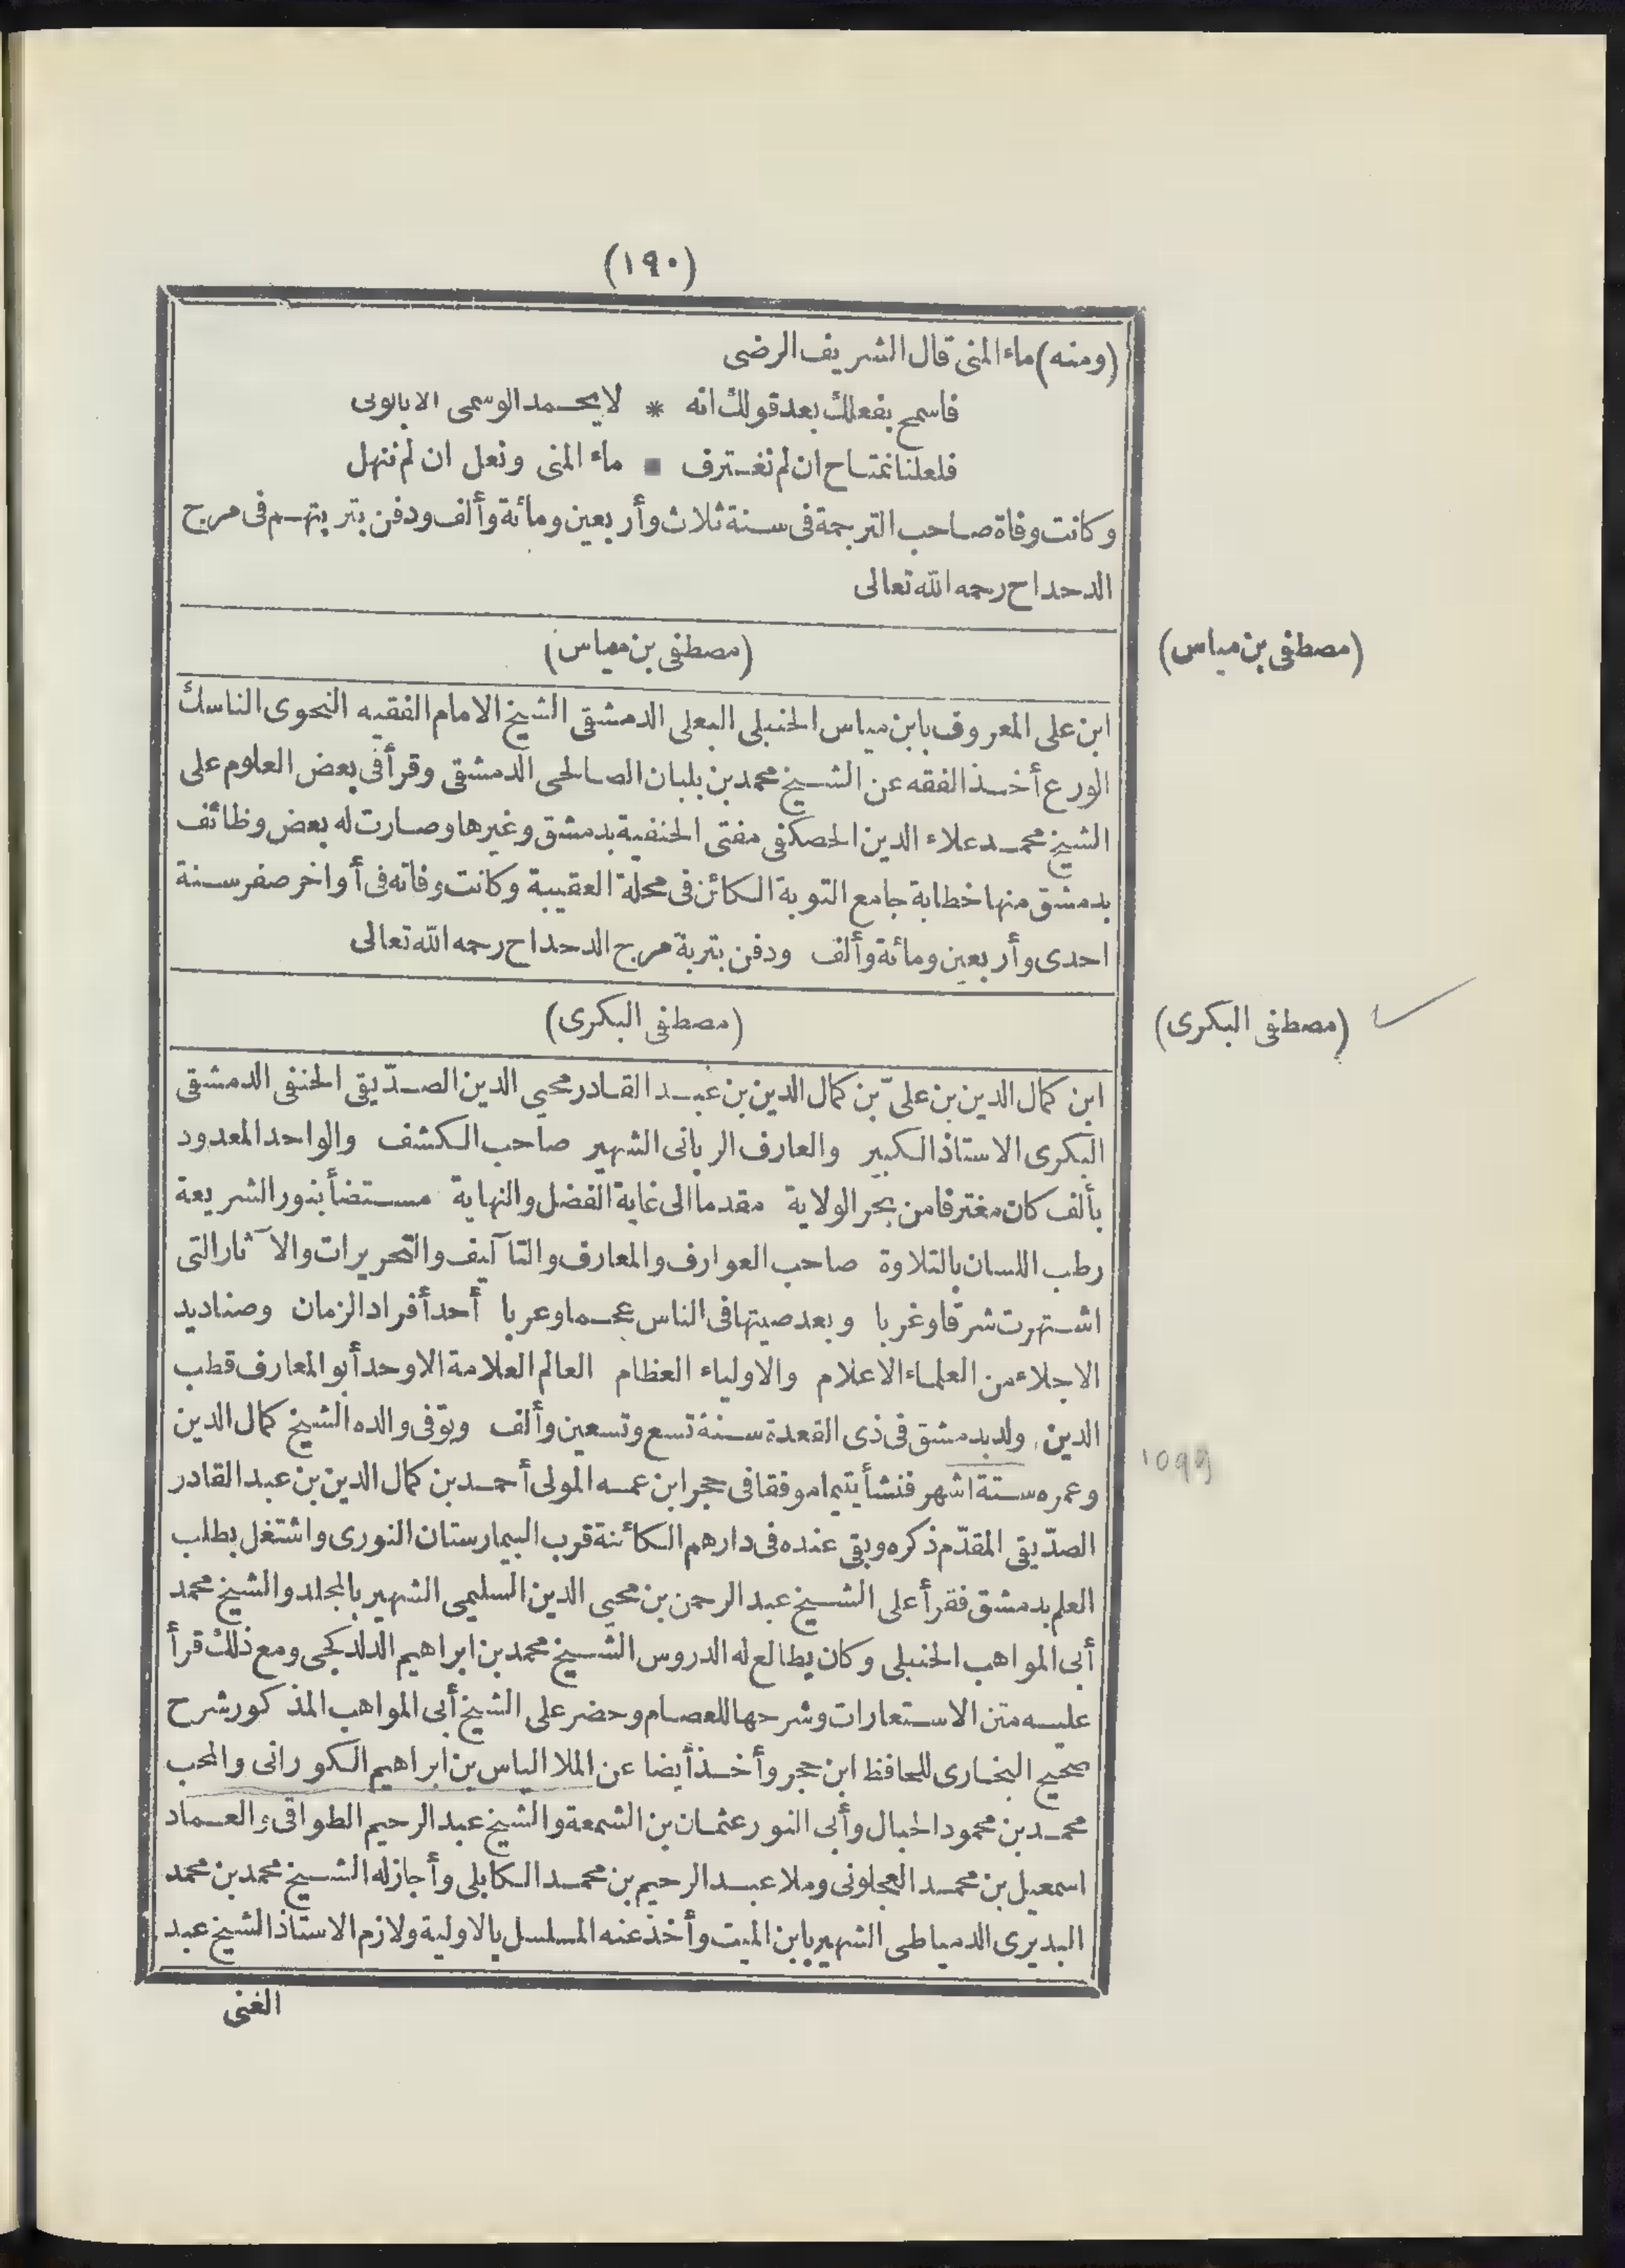 (١٩٠)
(ومنه) ماء المنى قال الشريف الرضى
فاسمح بفعلك بعد قولك انه * لا يحمد الوسمى الا بالولى
فلعلنا نمتاح ان لم نغترف ■ ماء المنى ونعل ان لم ننهل
وكانت وفاة صاحب الترجمة فى سنة ثلاث وأربعين ومائة وألف ودفن بتربتهم فى مرج
الدحداح رحمه الله تعالى
(مصطفى بن مياس)
(مصطفى بن مياس)
ابن على المعروف بابن مياس الحنبلى البعلى الدمشقى الشيخ الامام الفقيه النحوى الناسك
الورع أخذ الفقه عن الشيخ محمد بن بلبان الصالحى الدمشقى وقرأ فى بعض العلوم على
الشيخ محمد علاء الدين الحصكفى مفتى الحنفية بدمشق وغيرها وصارت له بعض وظائف
بدمشق منها خطابة جامع التوبة الكائن فى محلة العقيبة وكانت وفاته فى أواخر صفر سنة
احدى وأربعين ومائة وألف ودفن بتربة مرج الدحداح رحمه الله تعالى
(مصطفى البكرى)
(مصطفى البكرى)
ابن كمال الدين بن علىّ بن كمال الدين بن عبد القادر محيى الدين الصدّيقى الحنفى الدمشقى
البكرى الاستاذ الكبير والعارف الربانى الشهير صاحب الكشف والواحد المعدود
بألف كان مغترفا من بحر الولاية مقدما الى غاية الفضل والنهاية مستضأ بنور الشريعة
رطب اللسان بالتلاوة صاحب العوارف والمعارف والتآليف والتحريرات والآثار التى
اشتهرت شرقا وغربا وبعد صيتها فى الناس عجما وعربا أحد أفراد الزمان وصناديد
الاجلاء من العلماء الاعلام والاولياء العظام العالم العلامة الاوحد أبو المعارف قطب
الدين ولد بدمشق فى ذى القعدة سنة تسع وتسعين وألف وتوفى والده الشيخ كمال الدين
1099
وعمره ستة اشهر فنشأ يتيما موفقا فى حجر ابن عمه المولى أحمد بن كمال الدين بن عبد القادر
الصدّيقى المقدّم ذكره وبقى عنده فى دارهم الكائنة قرب البيمارستان النورى واشتغل بطلب
العلم بدمشق فقرأ على الشيخ عبد الرحمن بن محيى الدين السليمى الشهير بالمجلد والشيخ محمد
أبى المواهب الحنبلى وكان يطالع له الدروس الشيخ محمد بن ابراهيم الدلدكجى ومع ذلك قرأ
عليه متن الاستعارات وشرحها للعصام وحضر على الشيخ أبى المواهب المذكور شرح
صحيح البخارى للحافظ ابن حجر وأخذ أيضا عن الملا الياس بن ابراهيم الكورانى والمحب
محمد بن محمود الحبال وأبى النور عثمان بن الشمعة والشيخ عبد الرحيم الطواقى والعماد
اسمعيل بن محمد العجلونى وملا عبد الرحيم بن محمد الكابلى وأجاز له الشيخ محمد بن محمد
البديرى الدمياطى الشهير بابن الميت وأخذ عنه المسلسل بالاولية ولازم الاستاذ الشيخ عبد
الغنى